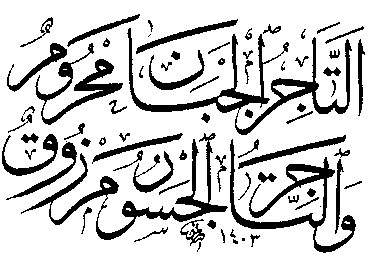 التَّاجِرُ الجَبَانُ مَحْرُومٌ
وَالتَّاجِرُ الجَسُورُ مَرْزُوقٌ
١٤٠٣